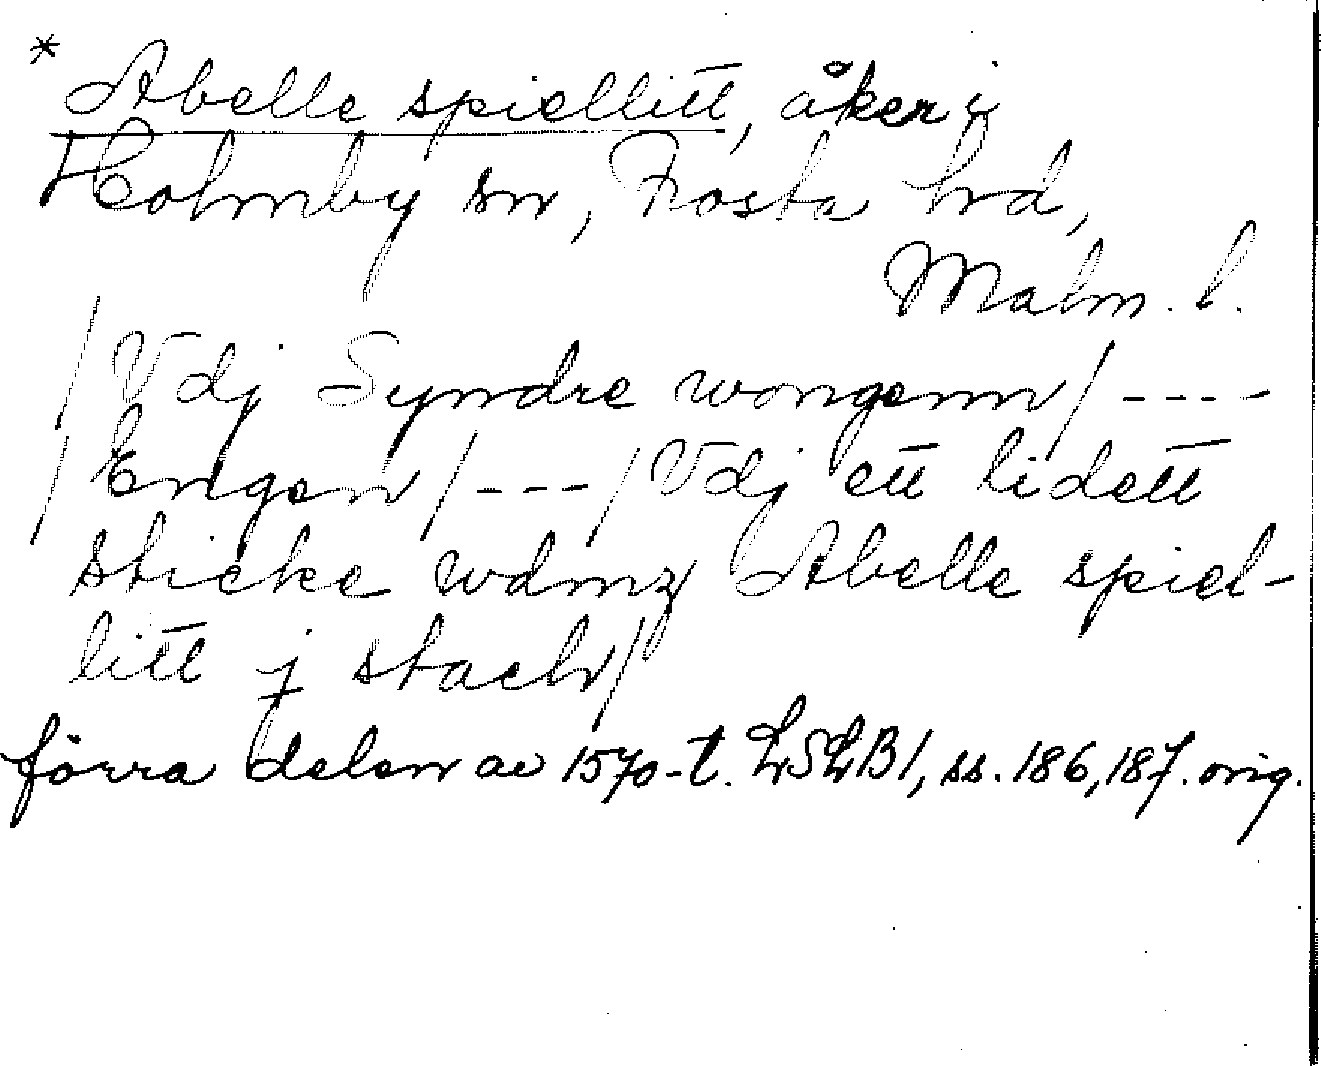 * Abelle spiellitt, åker i
Holmby sn, Frosta hd,
Malm. l.
/Vdj Syndre wongenn/----
/Engen/---/Vdj ett lidett
sticke wdmz Abelle spiel-
litt j stack/
förra delen av 1570-t. LSLB1, ss. 186, 187. orig.